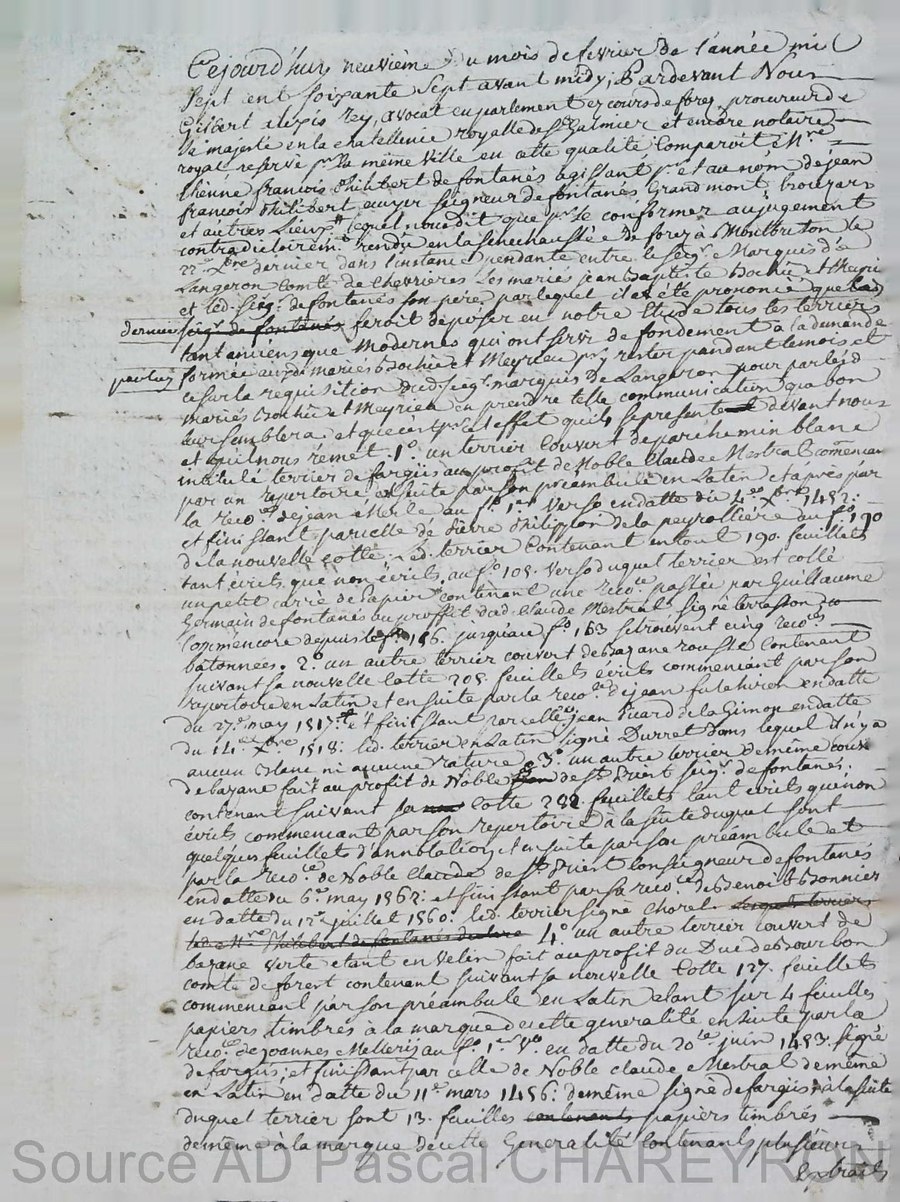 Cejourd'huy neuvième du mois de fevrier de l'année mil
Sept cent soixante Sept avant midy, Pardevant Nous
Gilbert alexis rey, avocat en parlement es cours de forez procureur de
Sa majesté en la chatellenie royalle de St Galmier et encore notaire
royal reservé pr la même ville en cette qualité comparoit Mre
Etienne françois Philibert de fontanés agissant pr et au nom de jean
françois Philibert ecuyer seigneur de fontanés Grandmont
et autres Lieux, lequel nous a dit que pr se conformer au jugement
contradictoiremt rendu en la Senechaussée de forez à Montbrison le
22e Xbre dernier dans l'instance pendante entre le Seigr Marquis de
Langeron Comte de Chevrieres Les mariés jean bapte
et led. Seigr de fontanés son pere, par lequel il a été prononcé que led
dernier seigr de fontanés feroit déposer en notre Etude tous les terriers
tant anciens que Modernes qui ont servi de fondement à la demande
formée mariés Bochu et Meyrieu pr y rester pendant le mois et
par luy
ce sur la requisition dud. Seigr marquis de Langeron pour par led
mariés Bochu et Meyrieu en prendre telle communication que bon
leur semblera et que c'est pr cet effet qu'il se presente devant nous
et qu'il nous remet 1o un terrier couvert de parchemin blanc
intitulé terrier de fargüs au profit de Noble Claude Mestral commençant
par un repertoire ensuite par son préambule en Latin et après par
la reco.ce de jean Merle au fo 1er Verso en datte du 4e Xbre 1452:
et finissant par celle de Pierre Philippon de la peyrolliere au fo 190
de la nouvelle cotte, led. terrier Contenant en tout 190 feuillets
tant écrits que non écrits, au fo 105 verso duquel terrier est collé
un petit carré de papier contenant une reco.ce passée par Guillaume
Germain de fontanés au proffit dud. Claude Mestral signé terrasson
Comme encore depuis le fo 156 jusqu'au fo 163 se trouvent cinq reco.ces
batonnées. 2o un autre terrier couvert de bazane rousse contenant
suivant sa nouvelle cotte 205 feuillets écrits commençant par son
repertoire en Latin et ensuite par la reco.ce de jean en datte
du 27e may 1517 et finissant par celle de jean Picard de la Gimon en datte
du 14e Xbre 1518: led. terrier en Latin signé Durret dans lequel il n'y a
aucun blanc ni aucune rature, 3o un autre terrier de même couv.
de bazane fait au profit de Noble de St Priest seigr de fontanés;
contenant suivant sa cotte 282 feuillets tant écrits que non
écrits commençant par son repertoire à la suite duquel sont
quelques feuillets d'annotation, et ensuite par son préambule et
par la reco.ce de Noble Claude de St Priest Conseigneur de fontanés
en datte du 6e may 1562: et finissant par la reco.ce de Benoit Bonnier
en datte du 12e juillet 1560: led. terrier signé Chorel lesquels terriers
led. Mre Philibert de fontanés 4o un autre terrier couvert de
bazane verte etant en Velin fait au profit du Duc de Bourbon
comte de forest contenant suivant sa nouvelle Cotte 127 feuillets
commençant par son préambule en Latin etant sur 4 feuilles
papiers timbrés à la marque de cette generalité ensuite par la
reco.ce de joannes Mellerij au fo 1er Vo en datte du 20e juin 1453 signé
de fargüs, et finissant par celle de Noble claude Mestral de même
en Latin, en datte du 11e mars 1456: de même signé de fargüs à la suite
duquel terrier sont 13 feuilles contenants papiers timbrés
de même à la marque de cette Generalité Contenants plusieurs
Extraits
Source AD Pascal CHAREYRON